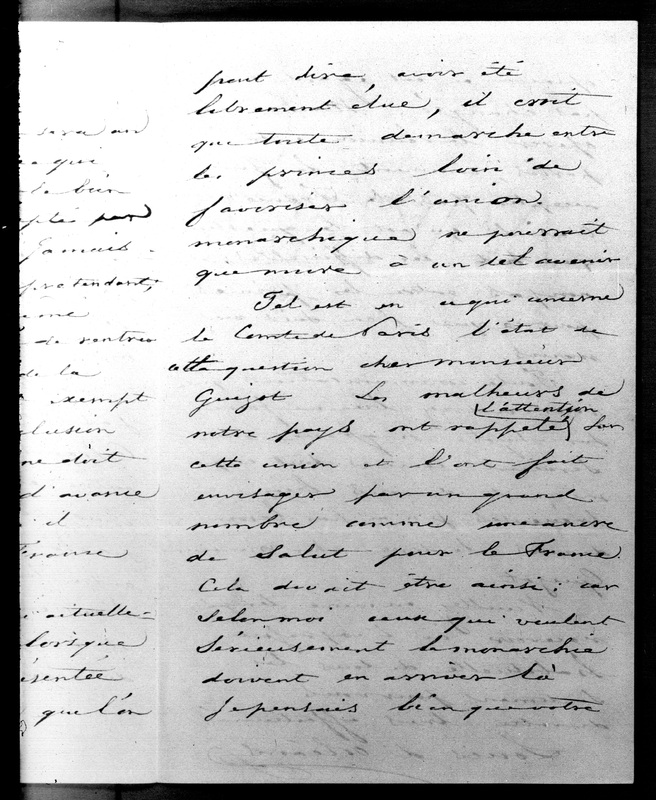 sera un
qui
le bien
par
jamais
pretendant,
de rentrer
de la
exempt
ne doit
d'avance
il
France
actuelle-
lorsque
ésentée
que l'on
peut dire, avoir été
librement élue, il croit
que toute demarche entre
les princes loin de
favoriser l'union
monarchique ne pourrait
que nuire à un tel avenir
Tel est en ce qui concerne
le Comte de Paris l'état de
cette question cher monsieur
Guizot Les malheurs de
l'attention
notre pays ont rappelé sur
cette union et l'ont fait
envisager par un grand
nombre comme une ancre
de Salut pour la France.
Cela devait être ainsi: car
selon moi ceux qui veulent
Sérieusement la monarchie
doivent en arriver là
Je pensais bien que votre